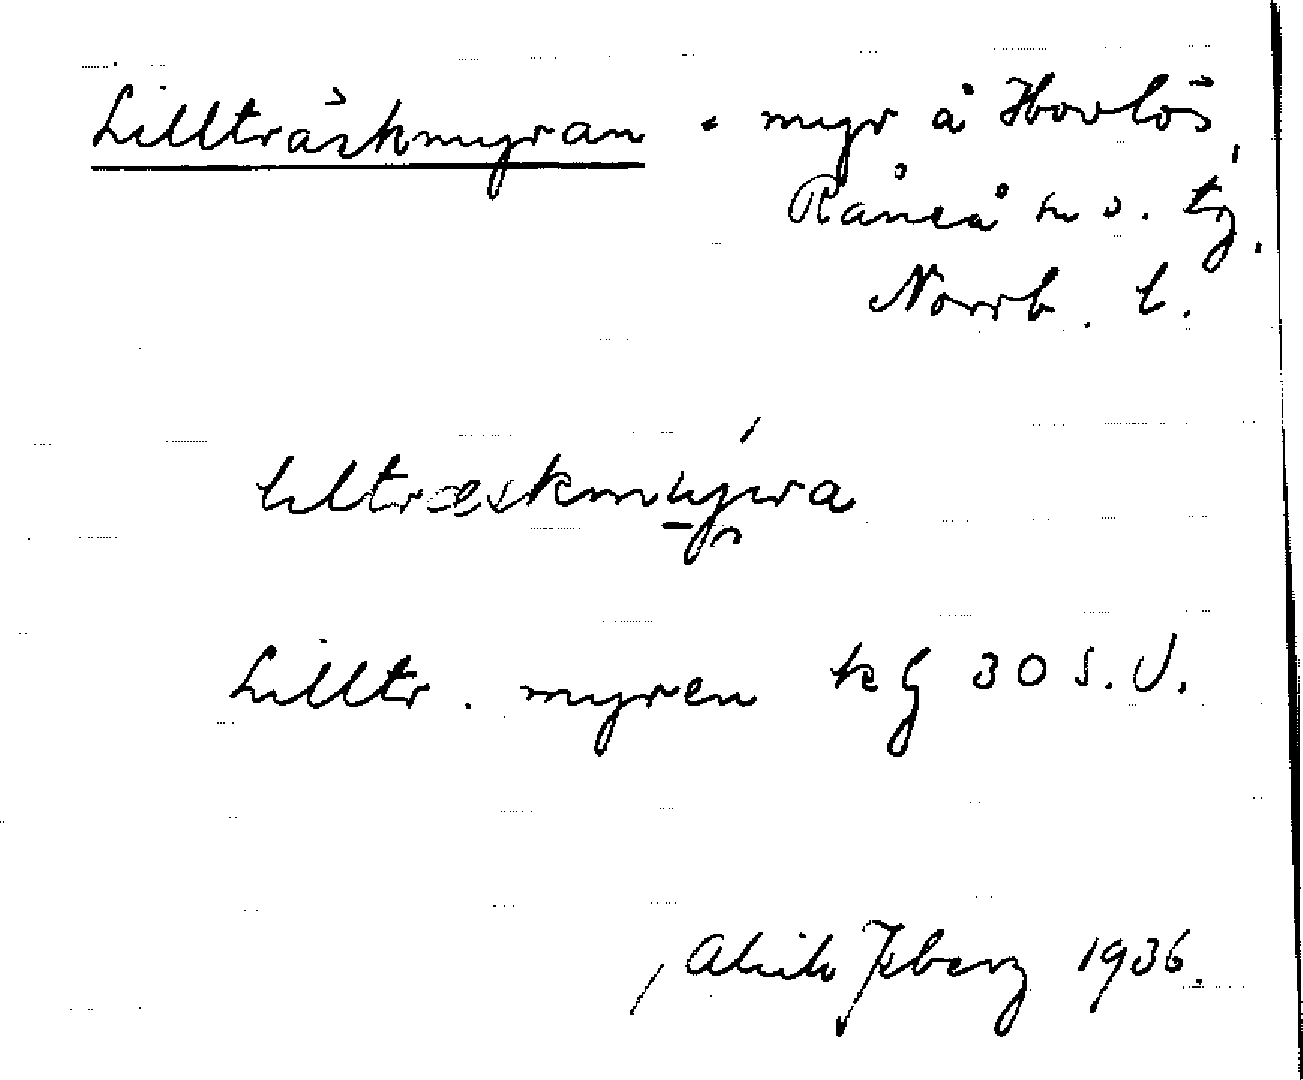 Lillträskmyran. myr å Hovlös,
Råneå sn o. tg.
Norrb. l.
liltræskmyra
Lilltr. myren kg 30 S.V.
1936.